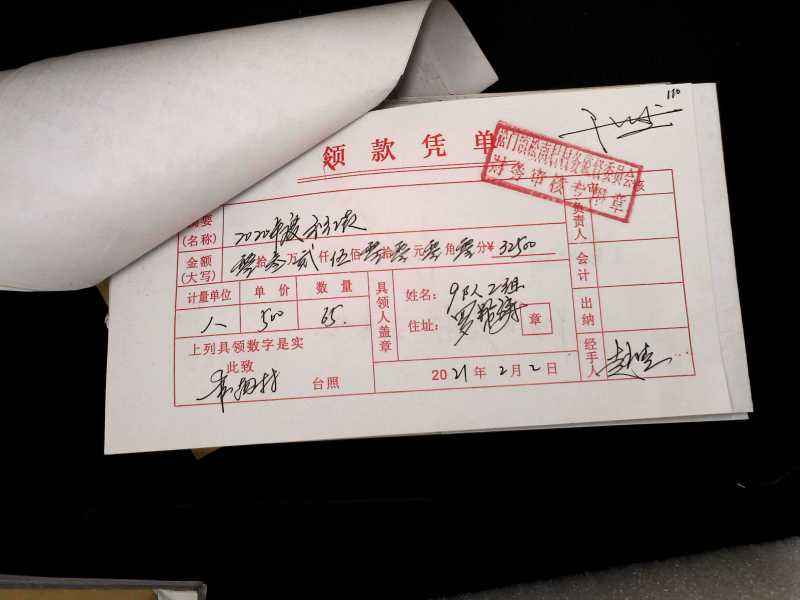 110
领款凭单
财务审核专用章
摘要
(名称) 2020年度分红款
金额
(大写) 零拾叁万贰仟伍佰零拾零元零角零分¥ 32500
计量单位 单价 数量
人 500 65.
具领人盖章
姓名: 9队2组
住址:
章
上列具领数字是实
此致
台照
2021年2月2日
负责人
会计
出纳
经手人